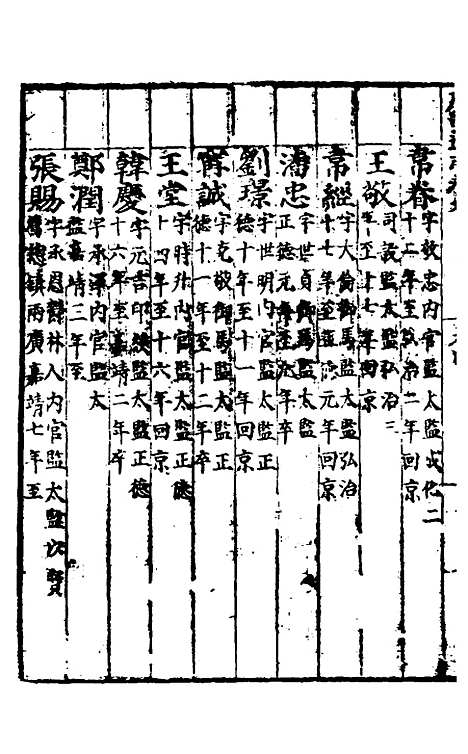 常春字敬忠内官監太監成化二
十二年至弘治二年回京
王敬司設監太監弘治三
年至十七年回京
韋經字大倫御馬太監弘治
十七年至正德元年回京
潘忠字世貞御馬監太監
正德元年至 年卒
劉璟字世明内官監太監正
德十年至十一年回京
甯誠字克敬御馬監太監正
德十一年至十二年卒
王堂字時升内官監太監正德
十四年至十六年回京
韓慶字元吉印綬監太監正德
十六年至嘉靖二年卒
鄭潤字承澤内官監太
監嘉靖三年至
張賜字承恩 林人内官監太監以賢
舊總鎮兩廣嘉靖七年至